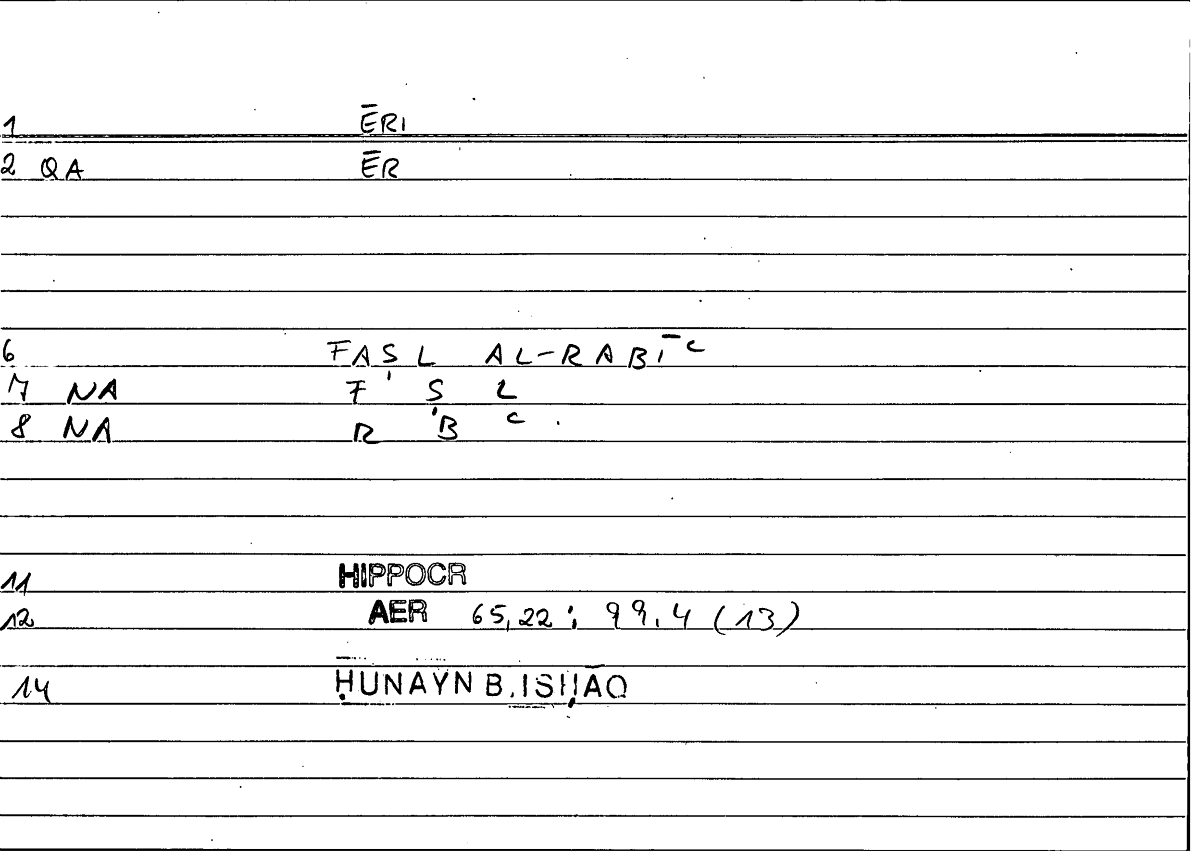 1 ĒRI
2 QA ĒR
6 FASL AL-RABĪʿ
7 NA F ' S L
8 NA R 'B ʿ .
11 HIPPOCR
12 AER 65,22 ; 99,4 (13)
14 ḤUNAYN B. ISḤĀQ